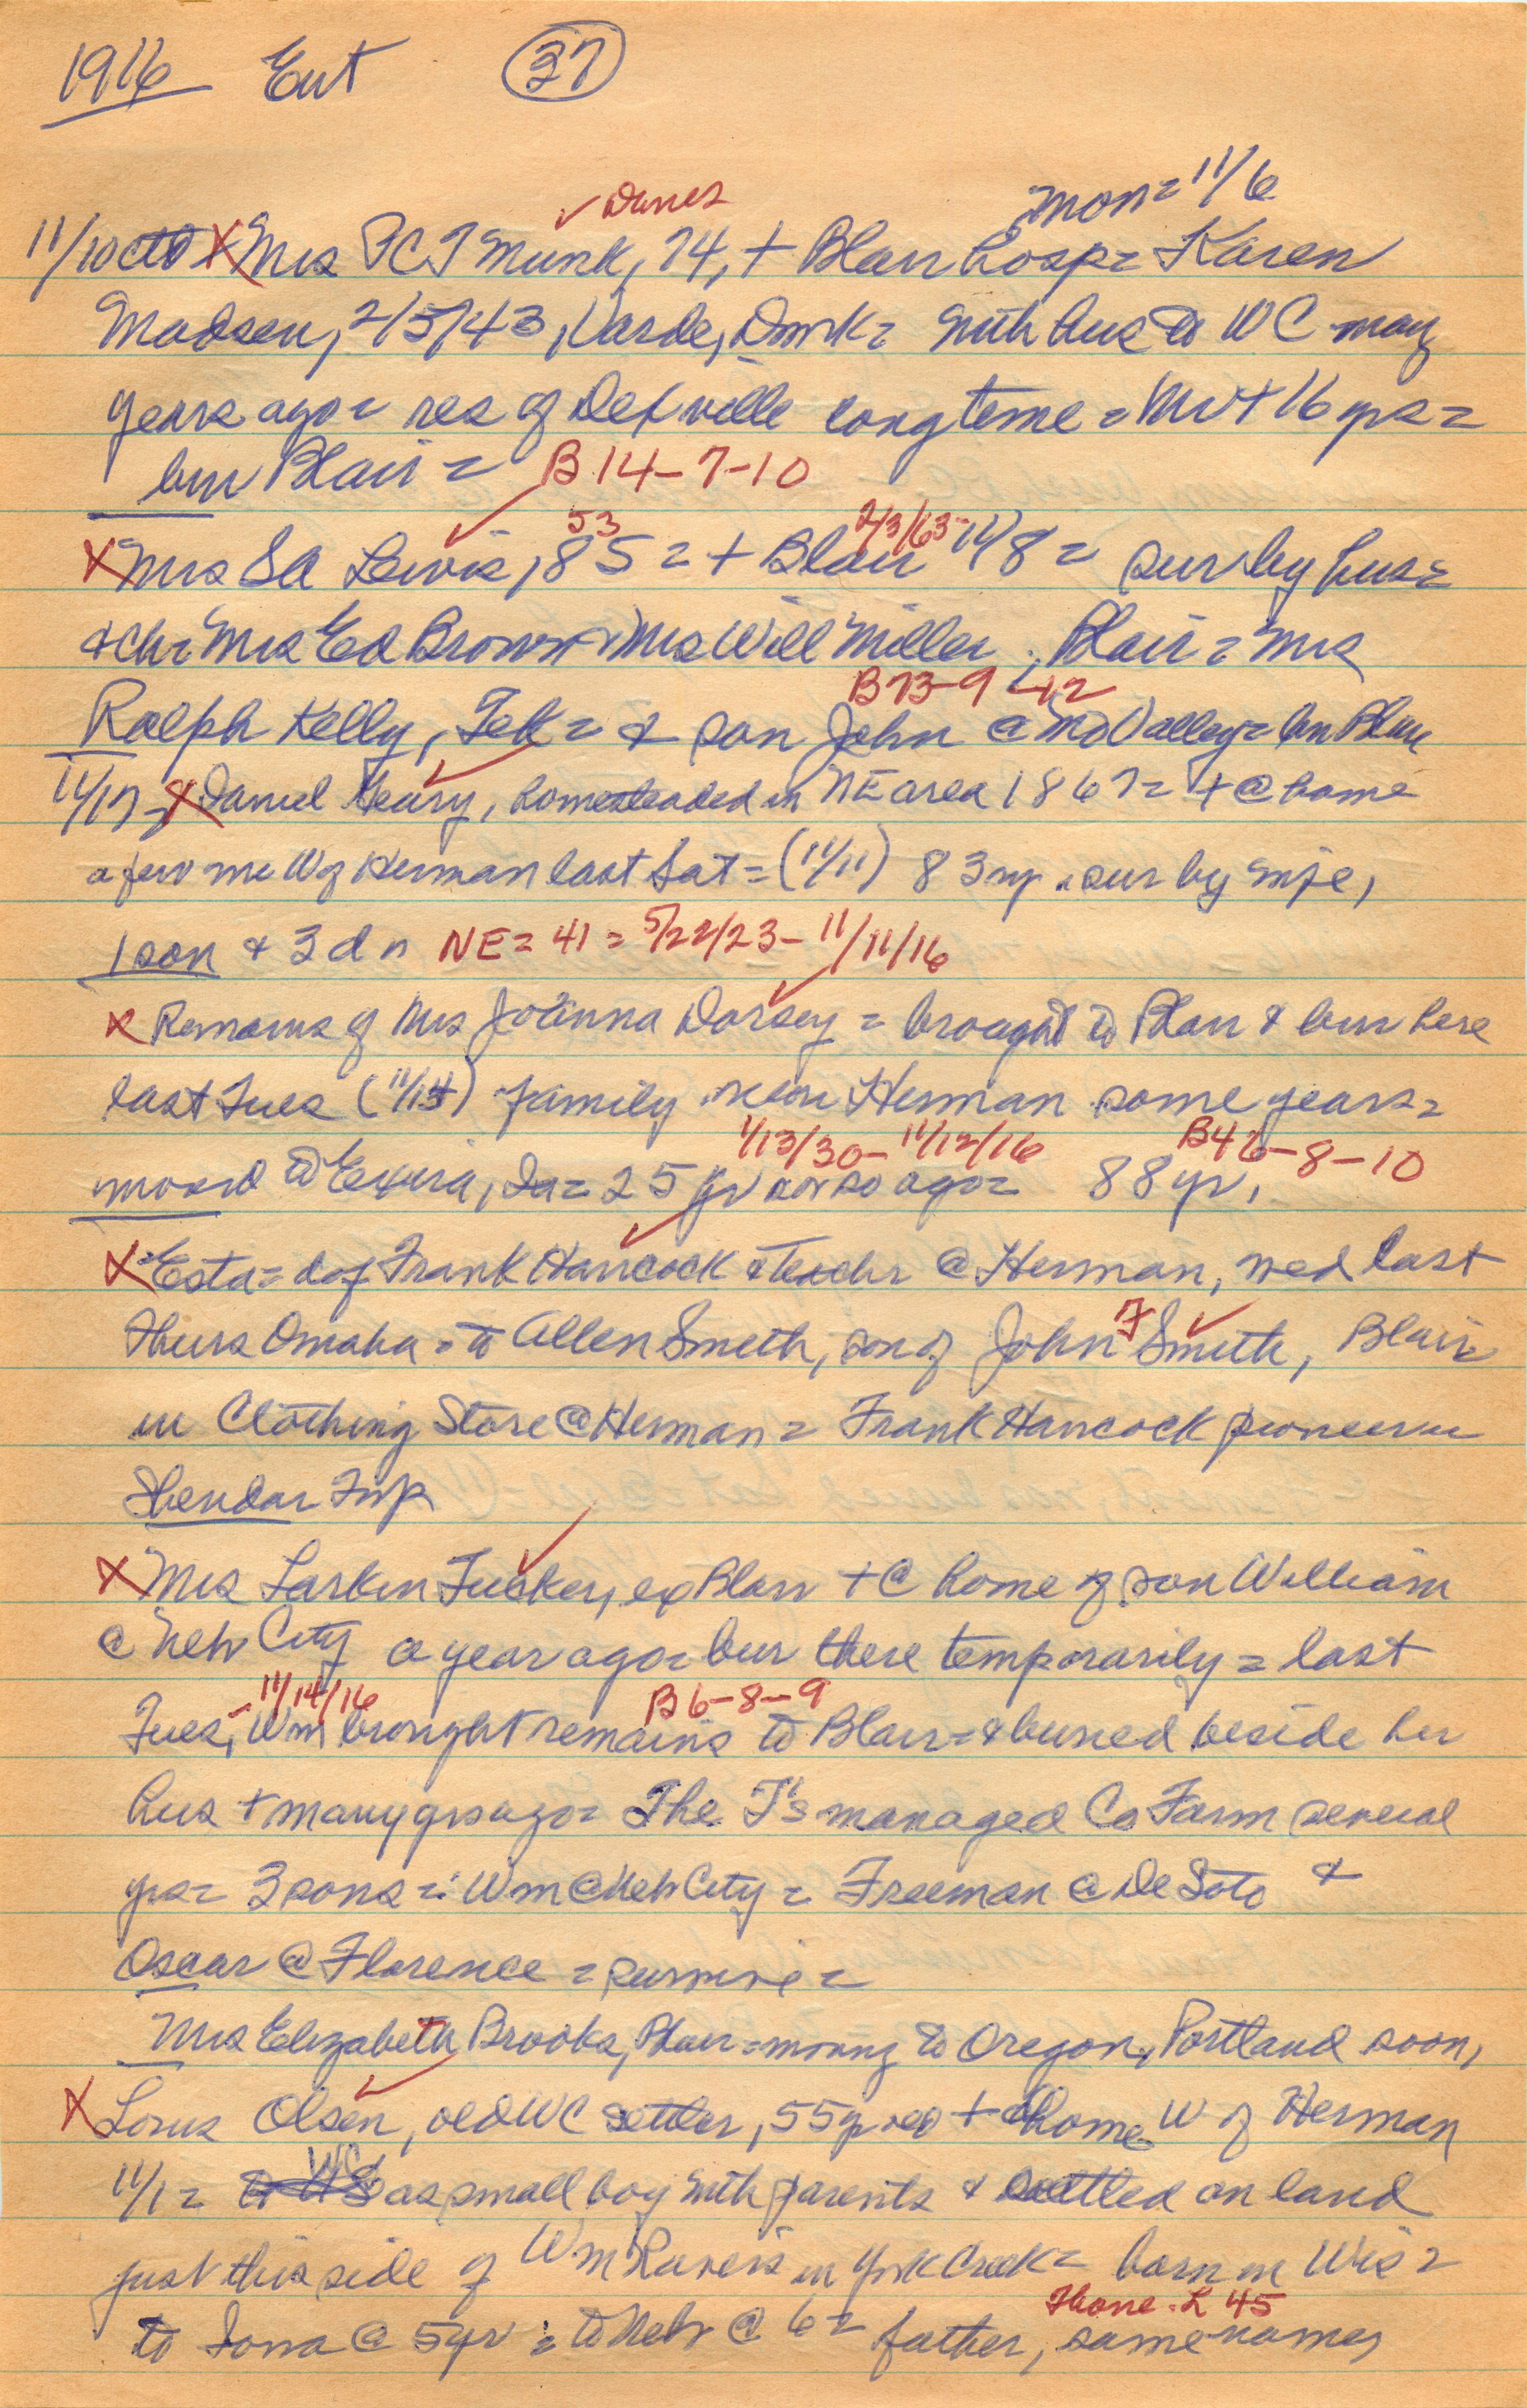 1916 Ent 37
✓ Danes mon = 11/6
11/10 X Mrs P C T Munk, 74, + Blair hosp = Karen
Madsen, 2/5/43, Varde, Dmk = with hus to WC many
years ago = res of Dexville long time = Mr + 16 yrs =
bur Blair = B 14-7-10
53 2/3/63-
X Mrs SA Lewis, 85 = + Blair 11/8 = sur by hus =
+ ch = Mrs Ed Brown + Mrs Will Miller, Blair = Mrs
B 73-9-12
Ralph Kelly, Tek = & son John @ Mo Valley = bur Blair
11/17 = X Daniel Heary, homesteaded in NE area 1867 = + @ home
a few mi W of Herman last Sat = (11/11) 83 yr. sur by wife,
1 son & 3 d = NE = 41 = 5/22/23 - 11/11/16
X Remains of Mrs Joanna Dorsey = brought to Blair & bur here
last Tues (11/14) family near Herman some years =
1/13/30 - 11/12/16 B46-8-10
moved to Exira, Ia = 25 yr or so ago = 88 yr,
X Esta = d of Frank Hancock & teachr @ Herman, wed last
Thurs Omaha = to Allen Smith, son of John F Smith, Blair
in Clothing Store @ Herman = Frank Hancock pioneer in
Sheridan Twp
X Mrs Larkin Tucker, ex Blair + @ home of son William
@ Neb City a year ago = bur there temporarily = last
- 11/14/16 B 6-8-9
Tues, Wm brought remains to Blair = & buried beside her
hus + many yrs ago = The T's managed Co Farm several
yrs = 3 sons =: Wm @ Neb City = Freeman @ De Soto &
Oscar @ Florence = survive =
Mrs Elizabeth Brooks, Blair = moving to Oregon, Portland soon,
X Louis Olsen, old WC settler, 55 yr old + @ home W of Herman
11/1 = WC as small boy with parents & settled on land
just this side of Wm Ravens in York Creek = born in Wis =
Hone. L 45
to Iowa @ 5 yr = to Neb @ 6 = father, same name,